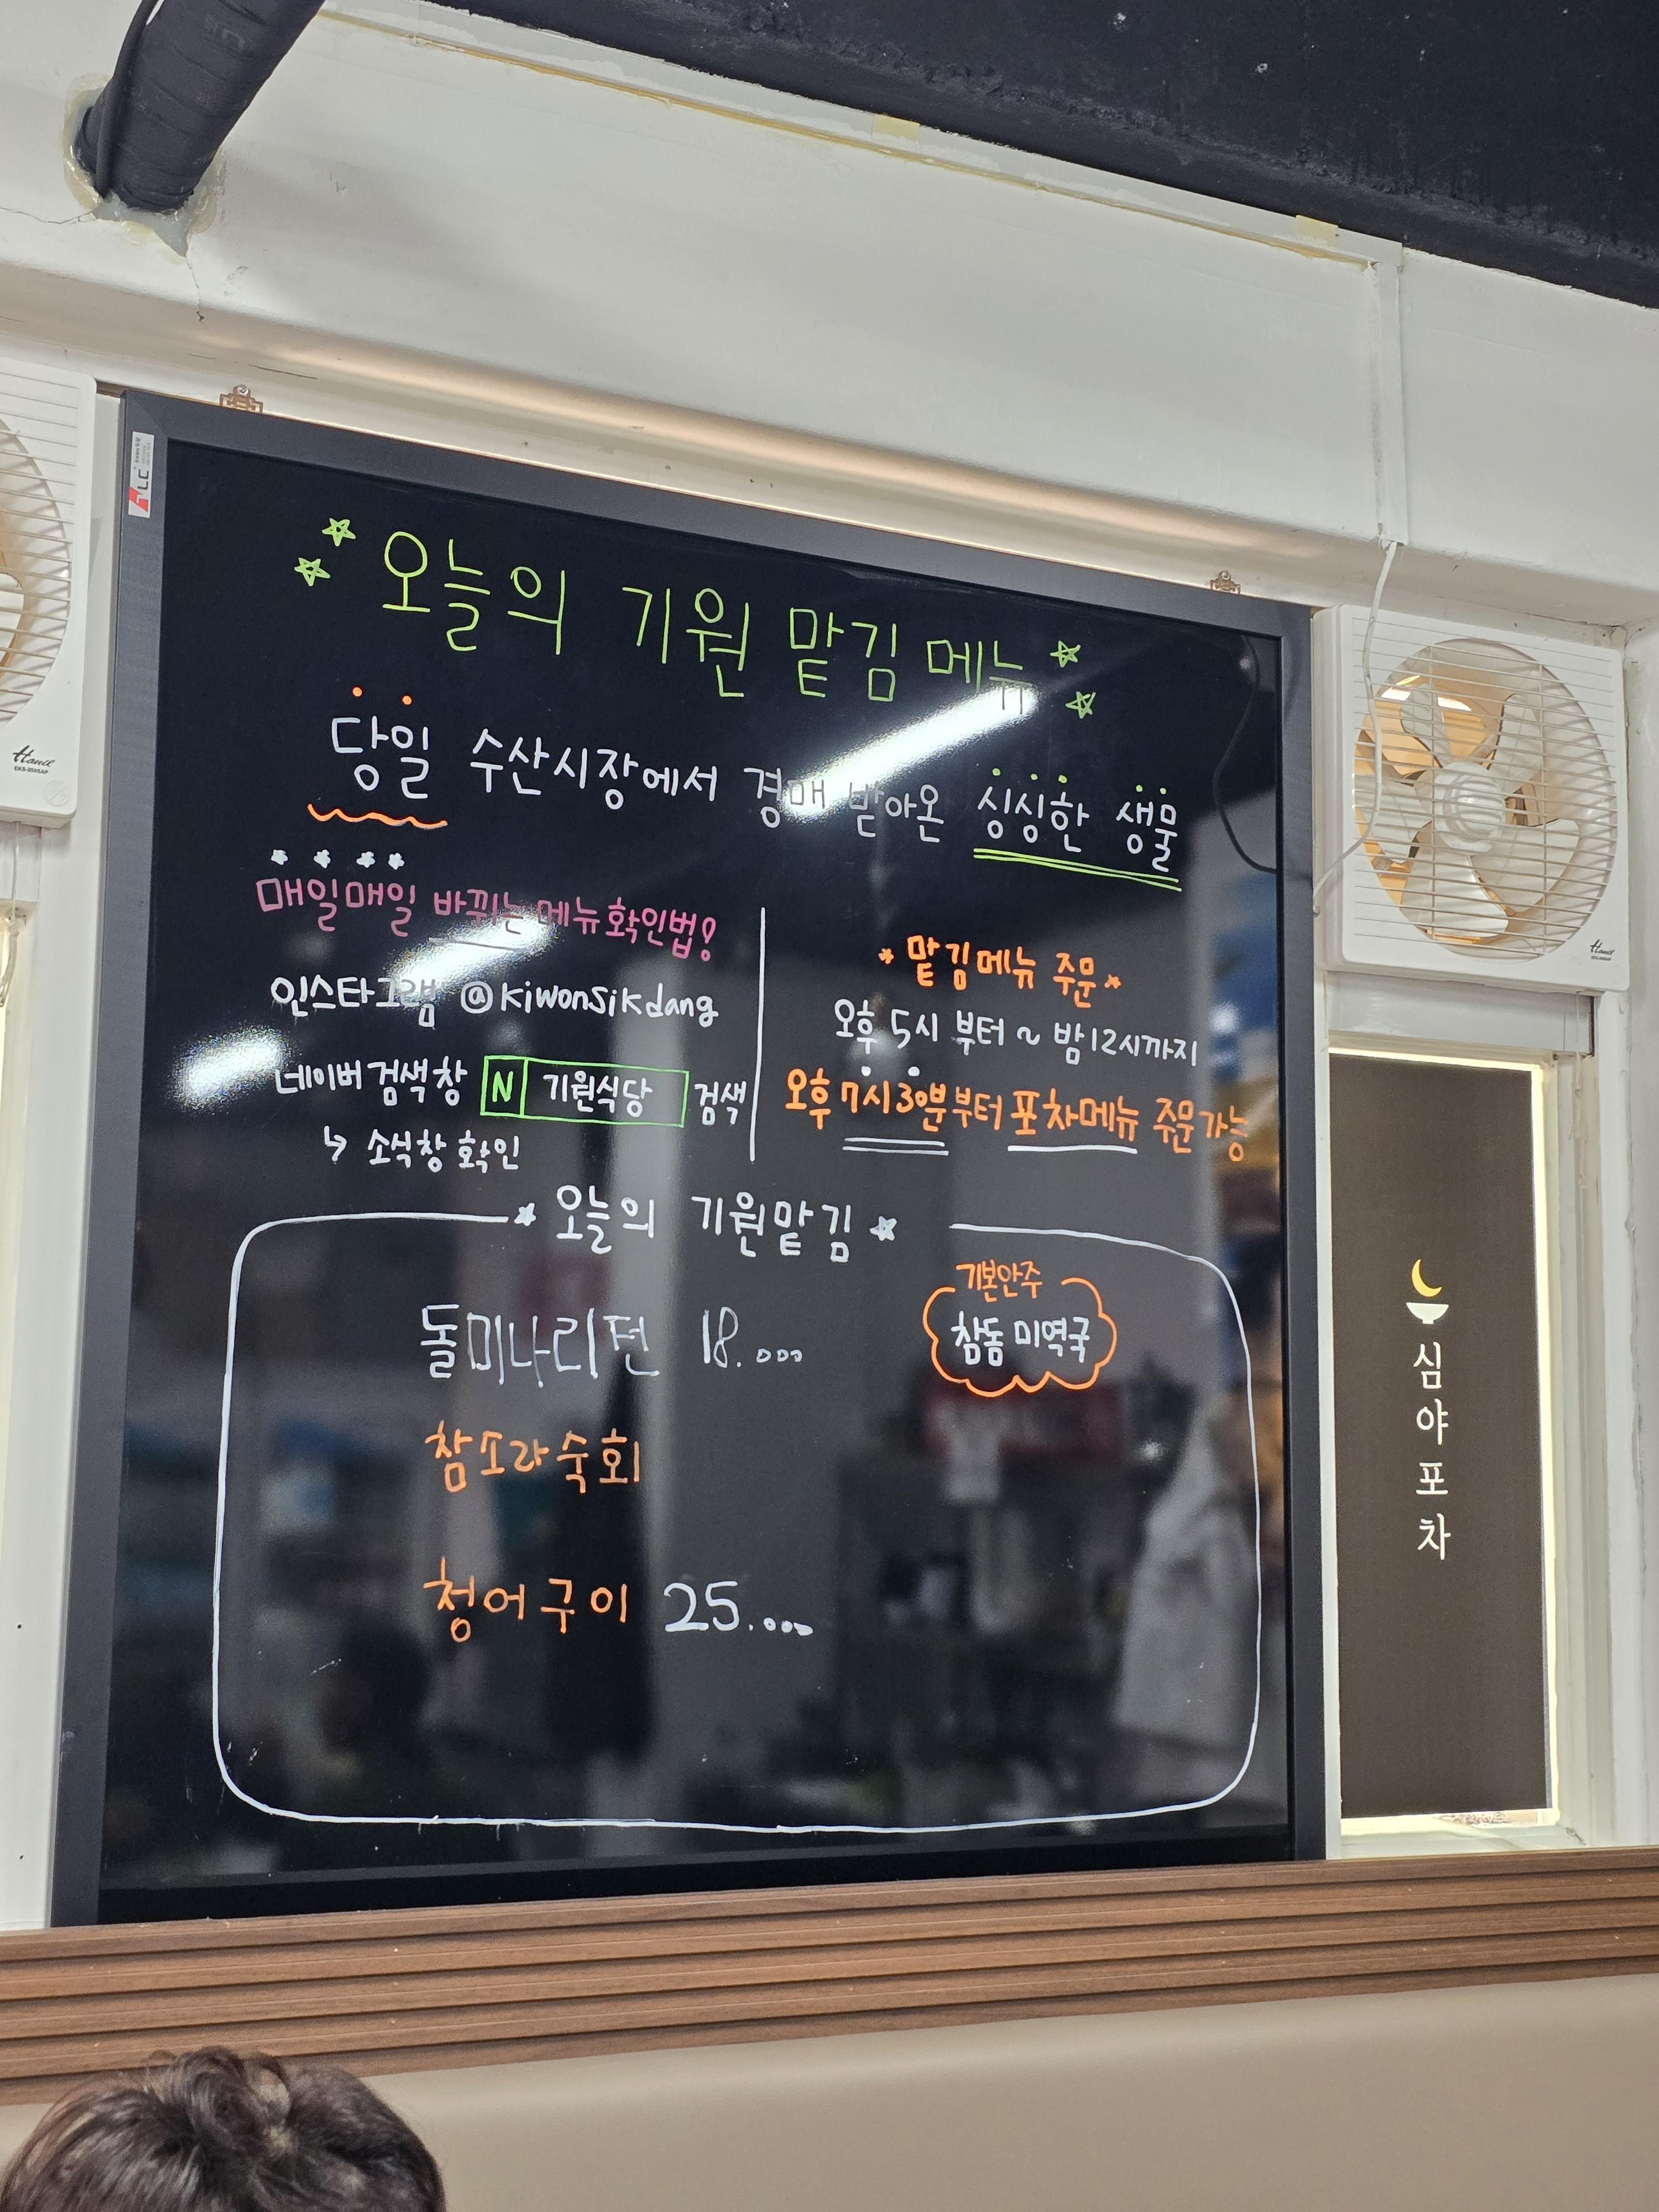 오늘의 기원 맡김 메뉴
당일 수산시장에서 경매 받아온 싱싱한 생물
매일매일 바뀌는 메뉴 확인법!
인스타그램 @kiwonsikdang
네이버 검색창 N 기원식당 검색
↳ 소식창 확인
*맡김메뉴 주문*
오후 5시 부터 ~ 밤 12시까지
오후 7시30분부터 포차메뉴 주문가능
오늘의 기원맡김
기본안주
참돔 미역국
돌미나리전 18.000
참소라숙회
청어구이 25.000
심야포차
Hanil
EKS-250SAP
Hanil